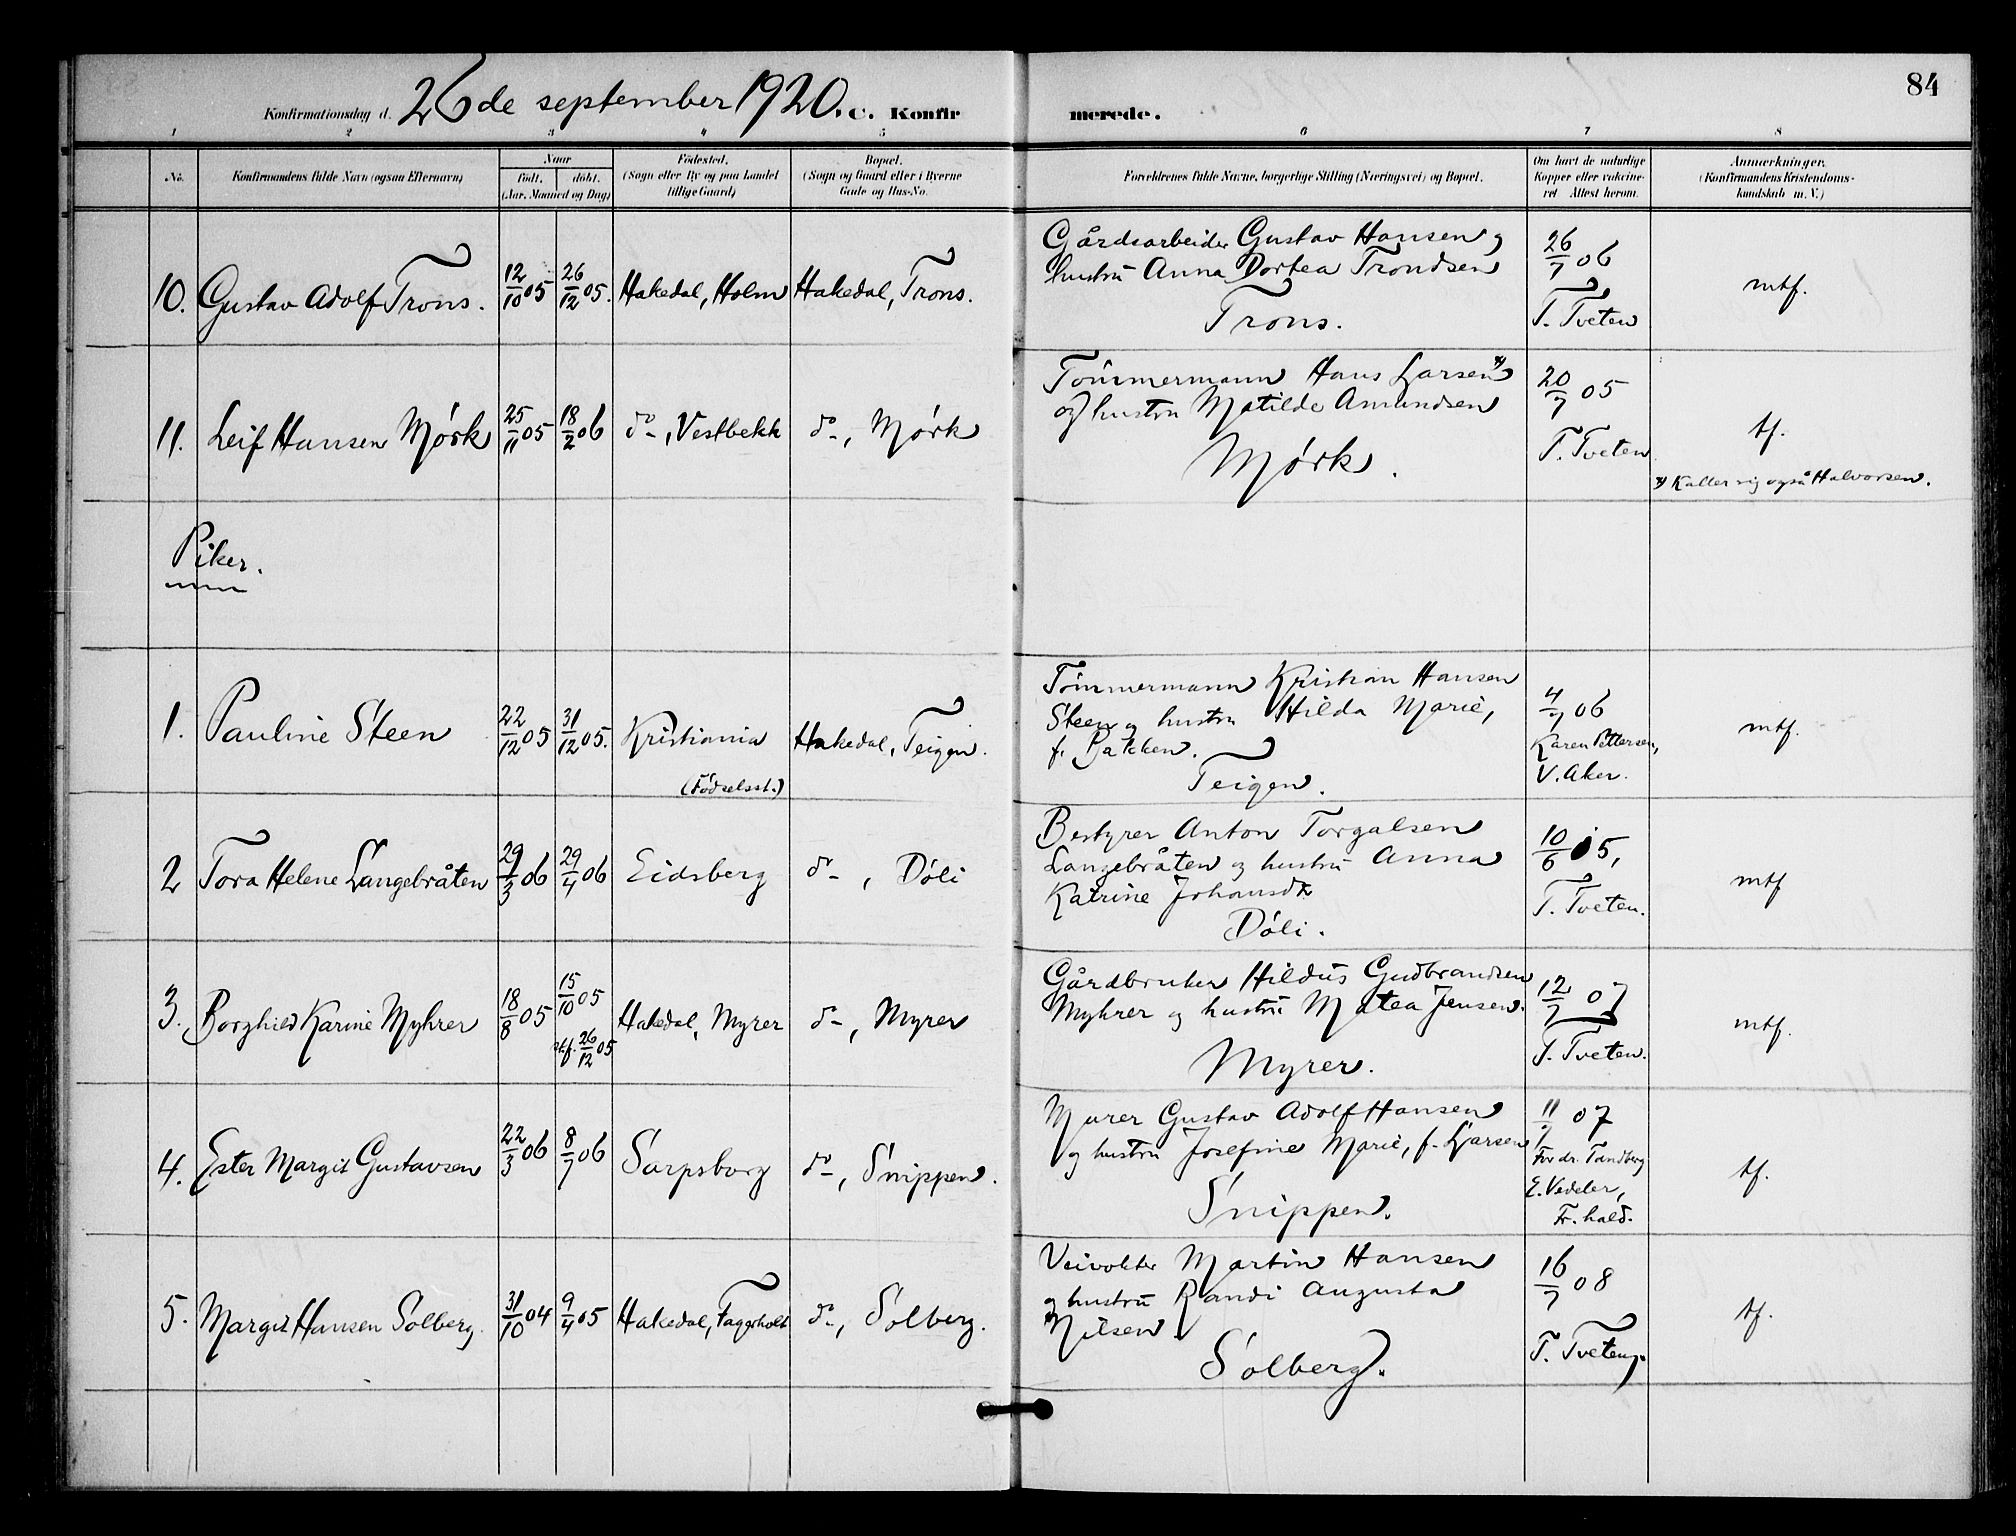 84
Konfirmationsdag d. 26de september 1920. C. Konfirmerede.
1 2 3 4 5 6 7 8
No. Konfirmandens fulde Navn (ogsaa Efternavn) Naar født. døbt. (Aar, Maaned og Dag) Fødested. (Sogn eller By og paa Landet tillige Gaard) Bopæl. (Sogn og Gaard eller i Byerne Gade og Hus-No. Forældrenes fulde Navne, borgerlige Stilling (Næringsvei) og Bopæl. Om havt de naturlige Kopper eller vakcineret Attest herom. Anmærkninger. (Konfirmandens Kristendomskundskab m. V.)
10. Gustav Adolf Trons. 12/10 05 26/12 05. Hakedal, Holm Hakedal, Trons.
Gårdsarbeider Gustav Hansen og
hustru Anna Dortea Trondsen
Trons.
26/7 06
T. Tveten
mtf.
11. Leif Hansen Mørk 25/11 05 18/2 06 do, Vestbekk do, Mørk
Tömmermann Hans Larsen x)
og hustru Matilde Amundsen
Mørk.
20/7 05
T. Tveten
tf.
x) Kaller sig også Halvorsen.
Piker.
1. Pauline Steen 22/12 05 31/12 05. Kristiania Hakedal, Teigen.
(Fødselsst.)
Tömmermann Kristian Hansen
Steen og hustru Hilda Marie,
f. Bakken.
Teigen.
4/7 06
Karen Pettersen,
V. Aker.
mtf.
2 Tora Helene Langebråten 29/3 06 29/4 06 Eidsberg do, Döli
Bestyrer Anton Torgalsen
Langebråten og hustru Anna
Katrine Johansdtr
Döli.
10/6 05,
T. Tveten.
mtf
3. Borghild Karine Myhrer 18/8 05 15/10 05 Hakedal, Myrer do, Myrer
stf. 26/12 05
Gårdbruker Hildus Gudbrandsen
Myhrer og hustru Matea Jensen.
Myrer.
12/7 07
T. Tveten.
mtf.
4. Ester Margit Gustavsen 22/3 06 8/7 06 Sarpsborg do, Snippen.
Murer Gustav Adolf Hansen
og hustru Josefine Marie, f. Larsen
Snippen.
11/9 07
For dr. Tandberg
E. Vedeler,
Fr. hald.
tf.
5. Margit Hansen Solberg. 31/10 04 9/4 05 Hakedal, Fagerholt do, Solberg.
Veivokter Martin Hansen
og hustru Randi Augusta
Nilsen.
Solberg.
16/7 08
T. Tveten.
tf.